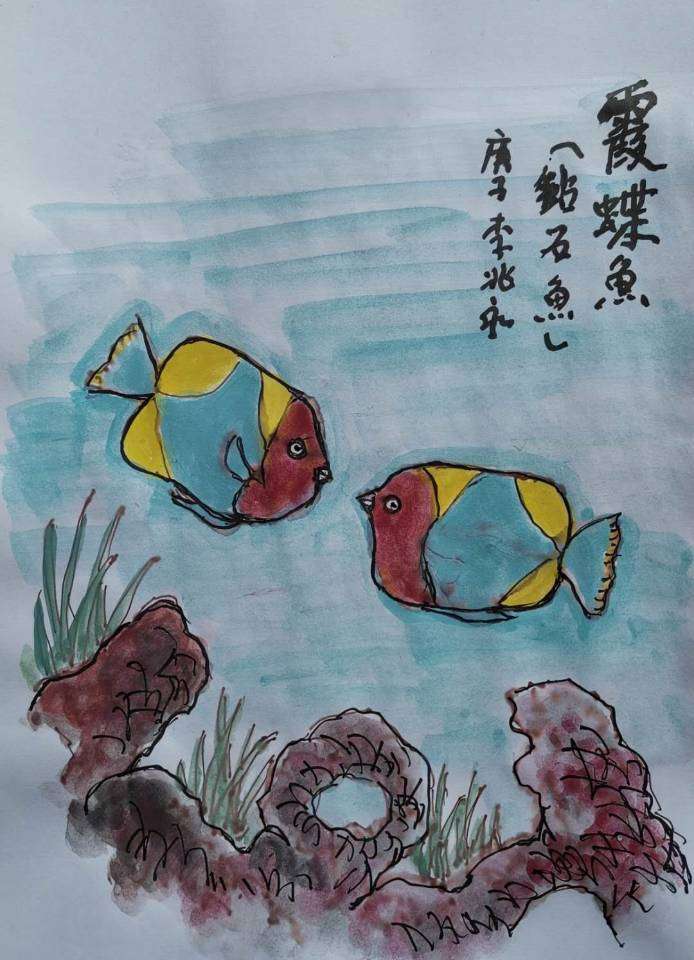 霞蝶魚
（鉆石魚）
庚子李兆永